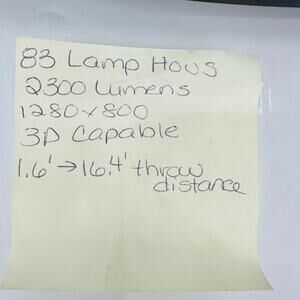 83 Lamp Hous
2300 Lumens
1280x800
3D Capable
1.6' → 16.4' throw
distance